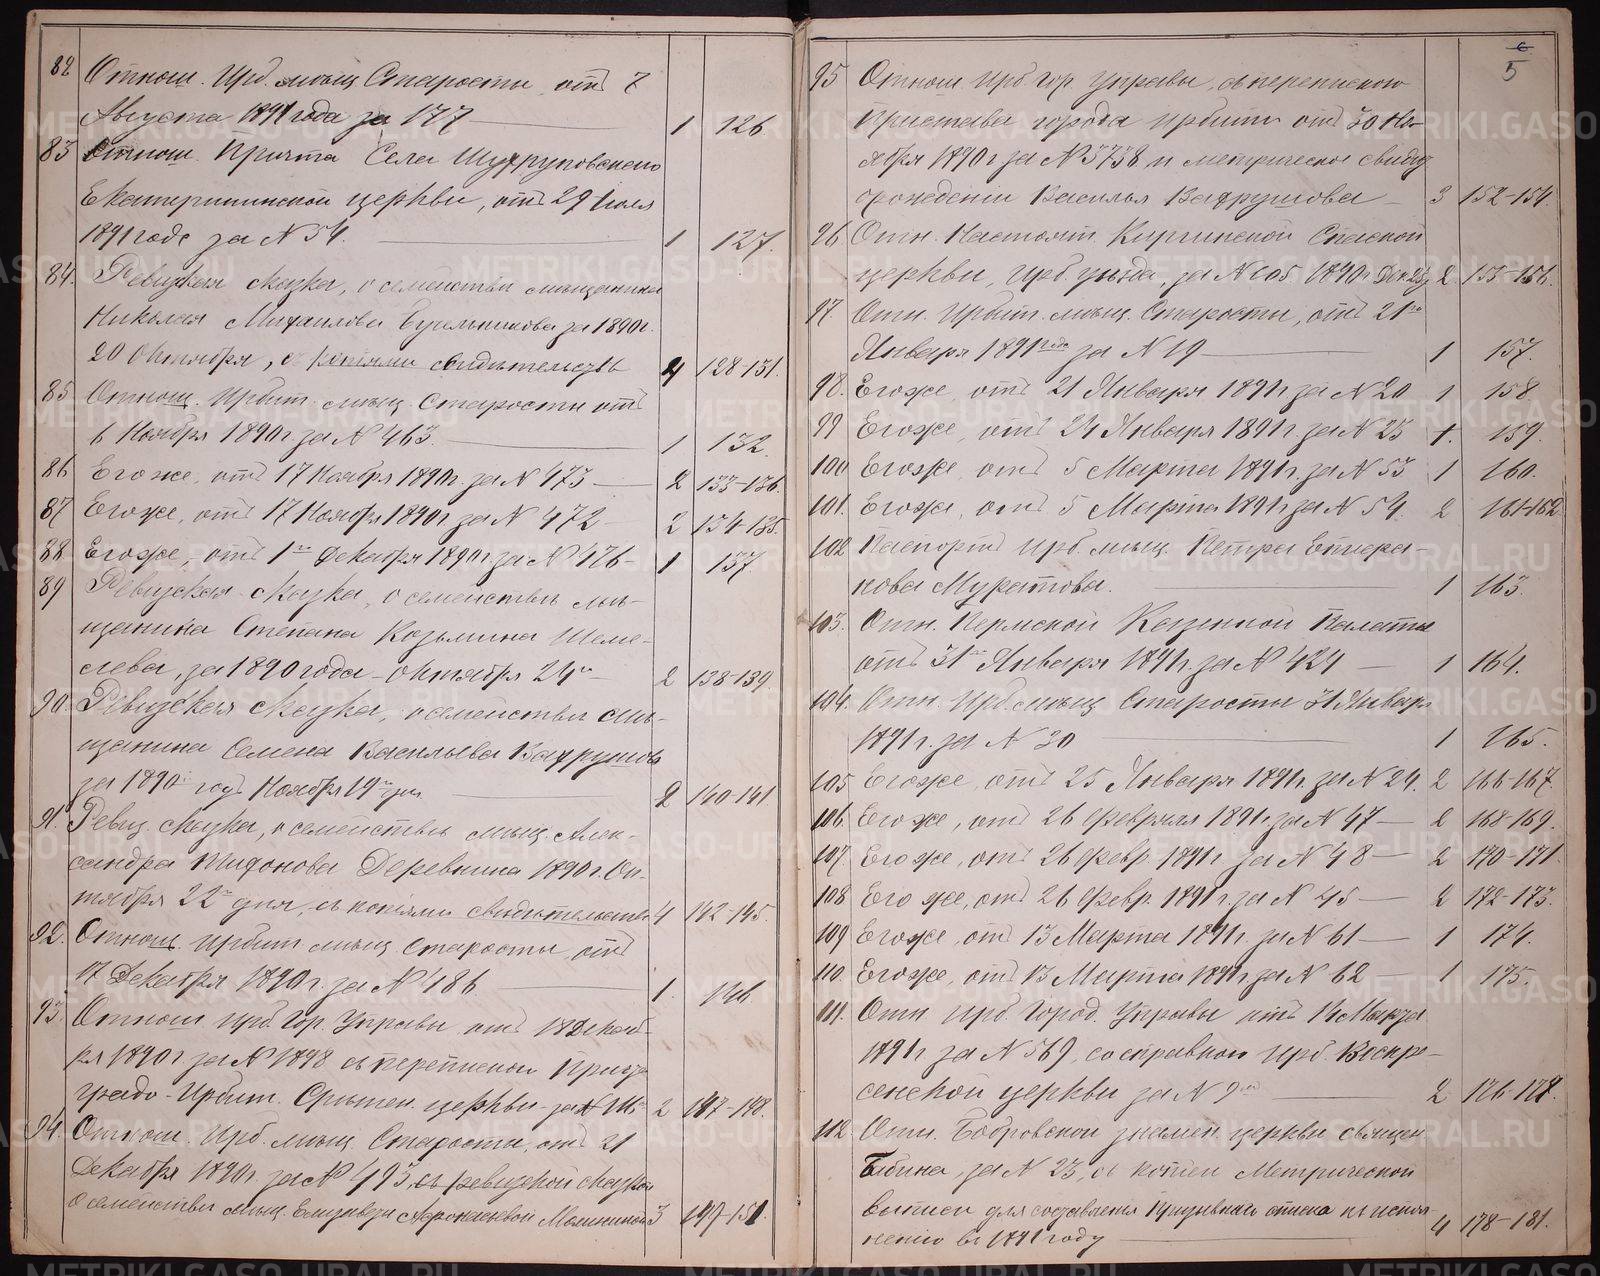 82 Отнош. Ирб. мѣщ. Старосты, отъ 7
Августа 1891 года за 177 — 1 126
83 Отнош. Причта Села Шухруповскаго
Екатерининской церкви, отъ 29 Іюля
1891 года за № 54. — 1 127.
84. Ревизская сказка, о семействѣ мѣщанина
Николая Михайлова за 1890 г.
20 Октября, съ копіями свидѣтельствъ 4 128-131.
85 Отнош. Ирбит. мѣщ. Старосты отъ
6 Ноября 1890 г. за № 463. — 1 132.
86 Его же, отъ 17 Ноября 1890 г. за № 473 — 2 133-136.
87 Его же, отъ 17 Ноября 1890 г. за № 472 — 2 134-135.
88 Его же, отъ 1го Декабря 1890 г. за № 476 — 1 137
89 Ревизская сказка, о семействѣ мѣ-
щанина Степана Козьмина Шеме-
лева, за 1890 года – октября 24го — 2 138-139
90. Ревизская сказка, о семействѣ мѣ-
щанина Семена Васильева Вахрушева
за 1890й годъ Ноября 19го дня — 2 140-141
91. Ревиз. сказка, о семействѣ мѣщ. Алек-
сандра Деревнина 1890 г. Ок-
тября 22го дня, съ копіями свидѣтельствъ 4 142-145.
92. Отнош. Ирбит. мѣщ. Старосты, отъ
17 Декабря 1890 г. за № 486 — 1. 146
93. Отнош. Ирб. Гор. Управы отъ 18 Декаб-
ря 1890 г. за № 1898 съ перепиской
градо-Ирбит. Срѣтен. церкви за № 2 147-148.
94. Отнош. Ирб. мѣщ. Старосты, отъ 21
Декабря 1890 г. за № 493, съ ревизской сказкой
о семействѣ мѣщ. Елизаветы 3 149-151.
6
5
95 Отнош. Ирб. гор. Управы, съ перепискою
Пристава города Ирбити отъ 30 Но-
ября 1890 г. за № 3738, и метрическое свидѣт.
о рожденіи Василья Вахрушова — 3 152-154.
96 Отн. Настоят. Киргинской Спасской
церкви, Ирб. уѣзда, за № 105 1890 г. Дек. 2 155-156.
97 Отн. Ирбит. мѣщ. Старосты, отъ 21го
Января 1891 года за № 19 — 1 157.
98. Его же, отъ 21 Января 1891 г. за № 20 1 158
99 Его же, отъ 24 Января 1891 г. за № 23 1. 159.
100 Его же, отъ 5 Марта 1891 г. за № 53 1 160.
101. Его же, отъ 5 Марта 1891 г. за № 54. 2 161-162
102 Паспортъ Ирб. мѣщ. Петра
Муратова. — 1 163.
103. Отн. Пермской Казенной Палаты
отъ 31го Января 1891 г. за № 424 — 1 164.
104. Отн. Ирб. мѣщ. Старосты 31 Января
1891 г. за № 30 — 1 165.
105 Его же, отъ 25 Января 1891 г. за № 24. 2 166-167.
106. Его же, отъ 26 Февраля 1891 г. за № 47 — 2 168-169.
107. Его же, отъ 26 Февр. 1891 г. за № 48 — 2 170-171.
108 Его же, отъ 26 Февр. 1891 г. за № 45 — 2 172-173.
109 Его же, отъ 13 Марта 1891 г. за № 61 — 1 174.
110. Его же, отъ 13 Марта 1891 г. за № 62 — 1 175.
111. Отн. Ирб. Город. Управы отъ 14 Марта
1891 г. за № 569, со справкой Ирб. Воскре-
сенской церкви за № — 2 176-177.
112 Отн. Бобровской знамен. церкви священ.
Бибина, за № 23, съ копіей Метрической
выписи для составленія призывнаго списка къ испол-
ненію въ 1891 году — 4 178-181.